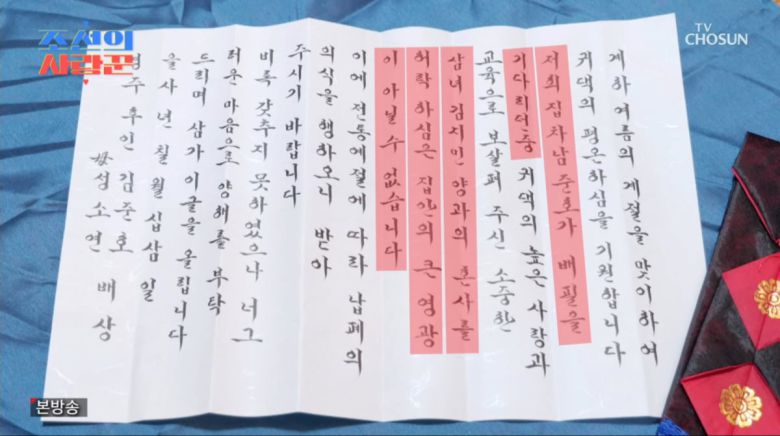 조선의
사랑꾼
TV
CHOSUN
계하여름의 계절을 맞이하여
귀댁의 평온하심을 기원합니다
저희 집 차남 준호가 배필을
기다리더중 귀댁의 높은 사랑과
교육으로 보살펴 주신 소중한
삼녀 김지민 양과의 혼사를
허락 하심은 집안의 큰 영광
이 아닐 수 없습니다
이에 전통예절에 따라 납폐의
의식을 행하오니 받아
주시기 바랍니다
비록 갖추지 못하였으나 너그
러운 마음으로 양해를 부탁
드리며 삼가 이글을 올립니다
을사년 칠월 십삼일
경주 후인 김준호
성소연 배상
본방송